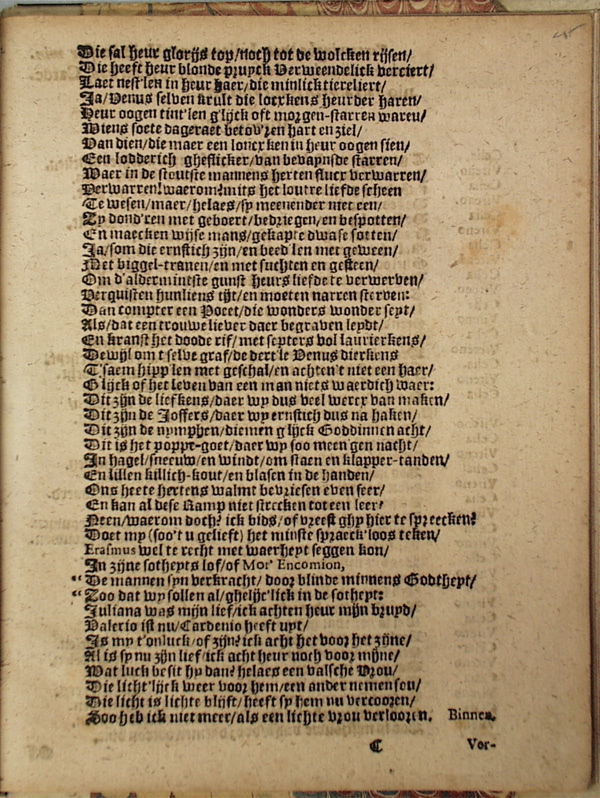 Die sal heur glorijs top/noch tot de wolcken rijsen/
Die heeft heur blonde pruyck Verweendelick verciert/
Laet nest'len in heur haer/die minlick tiereliert/
Ja/Venus selven krult die locrkens heur der haren/
Heur oogen tint'len g'lijck oft morgen-starren waren/
Wiens soete dageraet betov'ren hart en ziel/
Van dien/die maer een loncxken in heur oogen sien/
Een lodderich gheflicker/van bevaynsde starren/
Waer in de stoutste mannens herten flucx verwarren/
Verwarren? waerom? mits het loutre liefde scheen
Te wesen/maer/helaes/sy meenender niet een/
Zy dond'ren met geboert/bedriegen/en bespotten/
En maecken wijse mans/gekapte dwase sotten/
Ja/som die ernstich zijn/en beed'len met geween/
Met biggel-tranen/en met suchten en gesteen/
Om d'aldermintste gunst heurs liefde te verwerven/
Verquisten hunliens tijt/en moeten narren sterven:
Dan compter een Poeet/die wonders wonder seyt/
Als/dat een trouwe liever daer begraven leydt/
En kranst het doode rif/met septers vol laurierkens/
Dewijl om t selve graf/de dert'le Venus dierkens
T'saem hipp'len met geschal/en achten't niet een haer/
Glijck of het leven van een man niets waerdich waer:
Dit zijn de liefkens/daer wy dus veel wercx van maken/
Dit zijn de Joffers/daer wy ernstich dus na haken/
Dit zijn de nymphen/diemen g'lijck Goddinnen acht/
Dit is het poppe-goet/daer wy soo meen'gen nacht/
In hagel/sneeuw/en windt/om staen en klapper-tanden/
En lillen killich-kout/en blasen in de handen/
Ons heete hertens walmt bevriesen even seer/
En kan al dese Ramp niet strecken tot een leer?
Neen/waerom doch? ick bids/of vreest ghy hier te spreecken?
Doet my (soo't u gelieft) het minste spraeck'loos teken/
Erasmus wel te recht met waerheyt seggen kon/
In zijne sotheyts lof/of Mor' Encomion,
“De mannen syn verkracht/door blinde minnens Godtheyt/
“Zoo dat wy sollen al/ghelijc'lick in de sotheyt:
Juliana was mijn lief/ick achten heur mijn bruyd/
Valerio ist nu/Cardenio heeft uyt/
Is my t'onluck/of zijn? ick acht het voor het zijne/
Al is sy nu zijn lief/ick acht heur noch voor mijne/
Wat luck besit hy dan? helaes een valsche Vrou/
Die licht'lijck weer voor hem/een ander nemen sou/
Die licht is lichte blijft/heeft sy hem nu vercooren/
Soo heb ick niet meer/als een lichte vrou verlooren. Binnen.
C Vor-